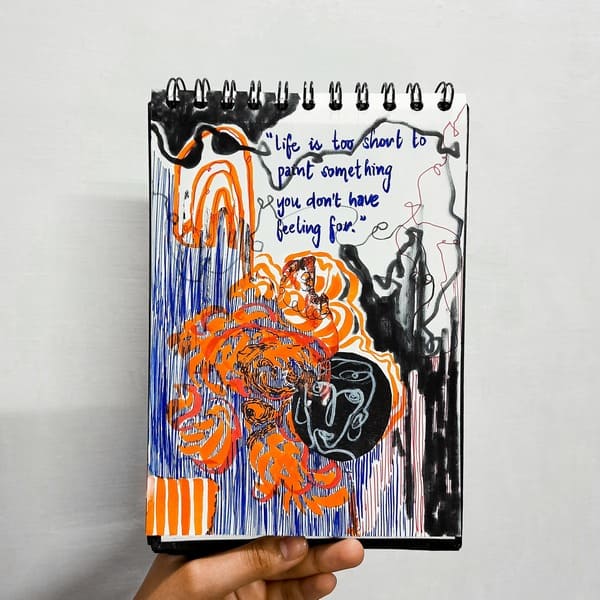 "Life is too short to
paint something
you don't have
feeling for."